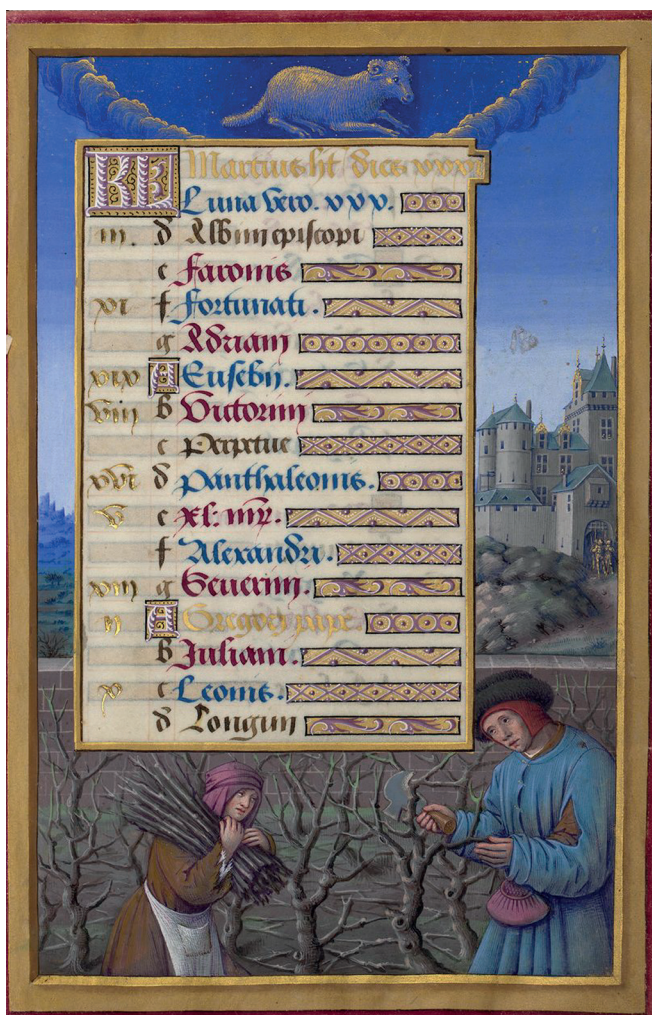 KL Martius ht dies xxxi
Luna vero. xxx.
iii. d Albini episcopi
e Faronis
xi f Fortunati.
g Adriani
xix A Eusebii.
viii b Victorini
c Perpetue
xvi d Panthaleonis.
v e xl. mr.
f Alexandri.
xiii g Severini.
ii A Gregorii pape.
b Iuliani.
x c Leonis.
d Longini